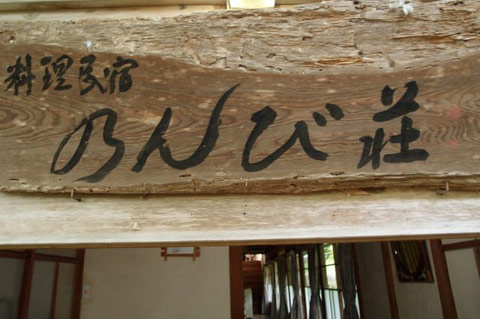 料理民宿
のんび荘